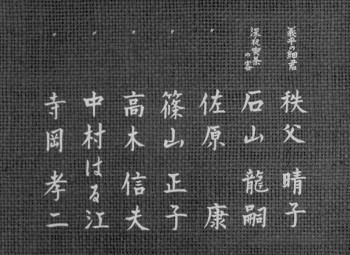 義平の細君 秩父晴子
深夜喫茶の客 石山龍嗣
〃 佐原康
〃 篠山正子
〃 高木信夫
〃 中村はる江
〃 寺岡孝二